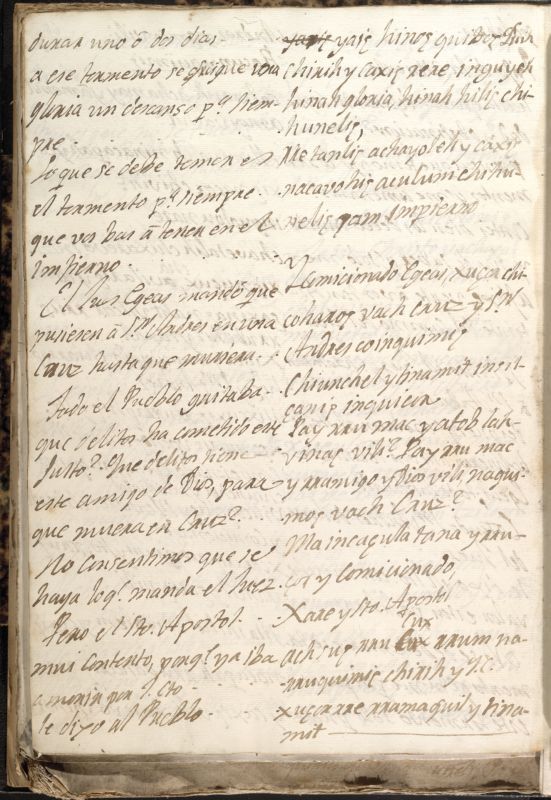 durar uno ó dos dias
a ese tormento se sigue una
gloria un descanso p.ª siem-
pre.
Lo que se debe temer es
el tormento p.ª siempre
que vos bas á tener en el
infierno.
El Juez Egeas mandó que
pusieren á S.n Andres en una
Cruz hasta que muriera.
Todo el Pueblo gritaba.
que delitos ha cometido este
Justo? Que delitos tiene
este amigo de Dios, para
que muera en Cruz?
No Consentimos que se
haga loq.e manda el Juez.
Pero el Sto. Apostol.
mui Contento, porq.e ya iba
a morir por J. Cto.
le dixo al Pueblo.
yaxiç hinoç
chirih y caxiç rere inquyeh
hinah gloria, hinah hiliç chi-
huneliç,
Retanliç achayoleh y caxy
nacavohiç aculum chihu-
neliç pam Impierno
Y Comicionado Egeas, xuçax chi
cohaxoç vach Cruz y S.n
Andres coinquimiç
Chiunchel y tinamit
caniç inquiera
Pay rru mac yatob lah-
vinaç vili? Pay rru mac
y rramigo y Dios vili naqui-
moç vach Cruz?
Ma incaçula tana y rru-
y Comicionado,
Xare y Sto. Apostol
Cux rrum na-
rruquimiç chirih y J.C.
xuçax rre rrumaquil y tina-
mit